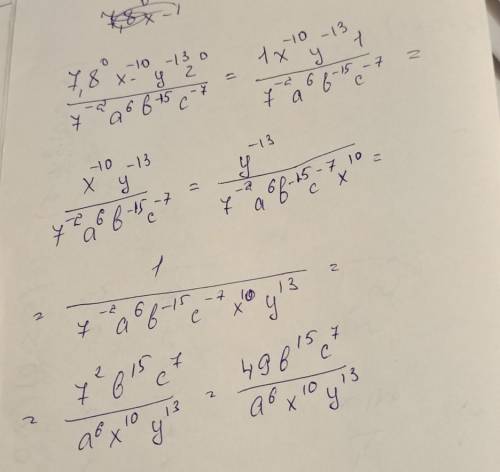 7,8⁰x⁻¹⁰y⁻¹³z⁰ / 7⁻²a⁶b⁻¹⁵c⁻⁷ = 1x⁻¹⁰y⁻¹³1 / 7⁻²a⁶b⁻¹⁵c⁻⁷ =
x⁻¹⁰y⁻¹³ / 7⁻²a⁶b⁻¹⁵c⁻⁷ = y⁻¹³ / 7⁻²a⁶b⁻¹⁵c⁻⁷x¹⁰ =
= 1 / 7⁻²a⁶b⁻¹⁵c⁻⁷x¹⁰y¹³ =
= 7²b¹⁵c⁷ / a⁶x¹⁰y¹³ = 49b¹⁵c⁷ / a⁶x¹⁰y¹³